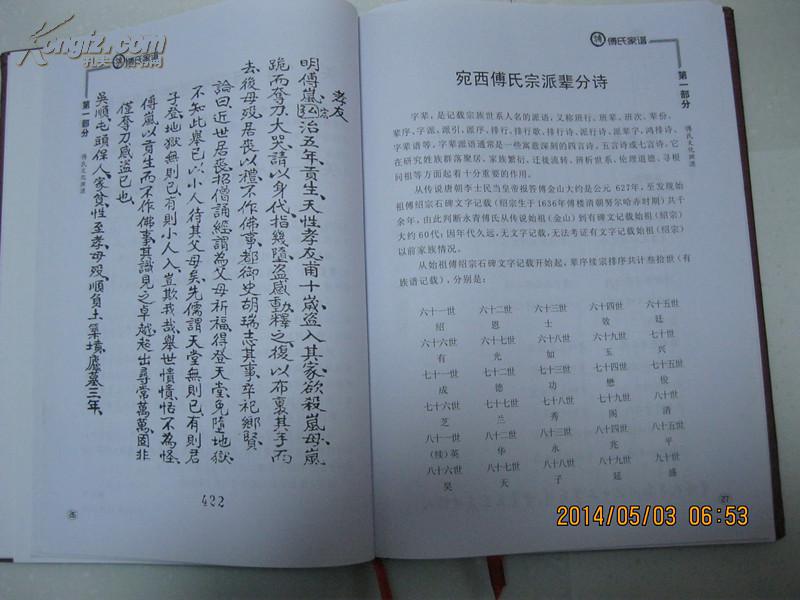 Kongfz.com
孔夫子旧书网
傅氏家谱
第一部分
傅氏文化渊源
孝友
明傅嵐弘治五年貢生天性孝友甫十歲盜入其家欲殺嵐母嵐
跪而奪刀大哭請以身代指幾墮盜感動釋之復以布裹其手而
去後母歿居喪以禮不作佛事都御史胡瑞志其事卒祀鄉賢
論曰近世居喪招僧誦經謂為父母祈福得登天堂免墮地獄
不知此舉已以小人待其父母矣先儒謂天堂無則已有則君
子登地獄無則已有則小人入豈欺我哉舉世憒憒恬不為怪
傅嵐以貢生而不作佛事其識見之卓越超出尋常萬萬固非
僅奪刀感盜已也
吳順屯頭保人家貧性至孝母歿順負土築墳廬墓三年
422
傅氏家谱
第一部分
傅氏文化渊源
宛西傅氏宗派辈分诗
字辈，是记载宗族世系人名的派语，又称班行、班辈、班次、辈份、
辈序、字派、派引、派序、排行、排行歌、排行诗、派行诗、派辈字、鸿排诗、
字辈谱等，字辈派语通常是一些寓意深刻的四言诗、五言诗或七言诗。它
在研究姓族群落聚居、家族繁衍、迁徙流转、辨析世系、伦理道德、寻根
问祖等方面起着十分重要的作用。
从传说唐朝李士民当皇帝报答傅金山大约是公元 627年，至发现始
祖傅绍宗石碑文字记载（绍宗生于1636年傅楼清朝努尔哈赤时期）共千
余年，由此判断永青傅氏从传说始祖（金山）到有碑文记载始祖（绍宗）
大约60代；因年代久远，无文字记载，无法考证有文字记载始祖（绍宗）
以前家族情况。
从始祖傅绍宗石碑文字记载开始起，辈序续宗排序共计叁拾世（有
族谱记载），分别是：
六十一世 六十二世 六十三世 六十四世 六十五世
绍 恩 士 敦 廷
六十六世 六十七世 六十八世 六十九世 七十世
有 光 如 玉 兴
七十一世 七十二世 七十三世 七十四世 七十五世
成 德 功 懋 俊
七十六世 七十七世 七十八世 七十九世 八十世
芝 兰 秀 阁 清
八十一世 八十二世 八十三世 八十四世 八十五世
(续)英 华 永 兆 平
八十六世 八十七世 八十八世 八十九世 九十世
昊 天 子 延 盛
27
2014/05/03 06:53